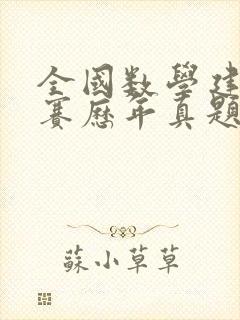 全國数學建
賽歷年真題
蘇小草草